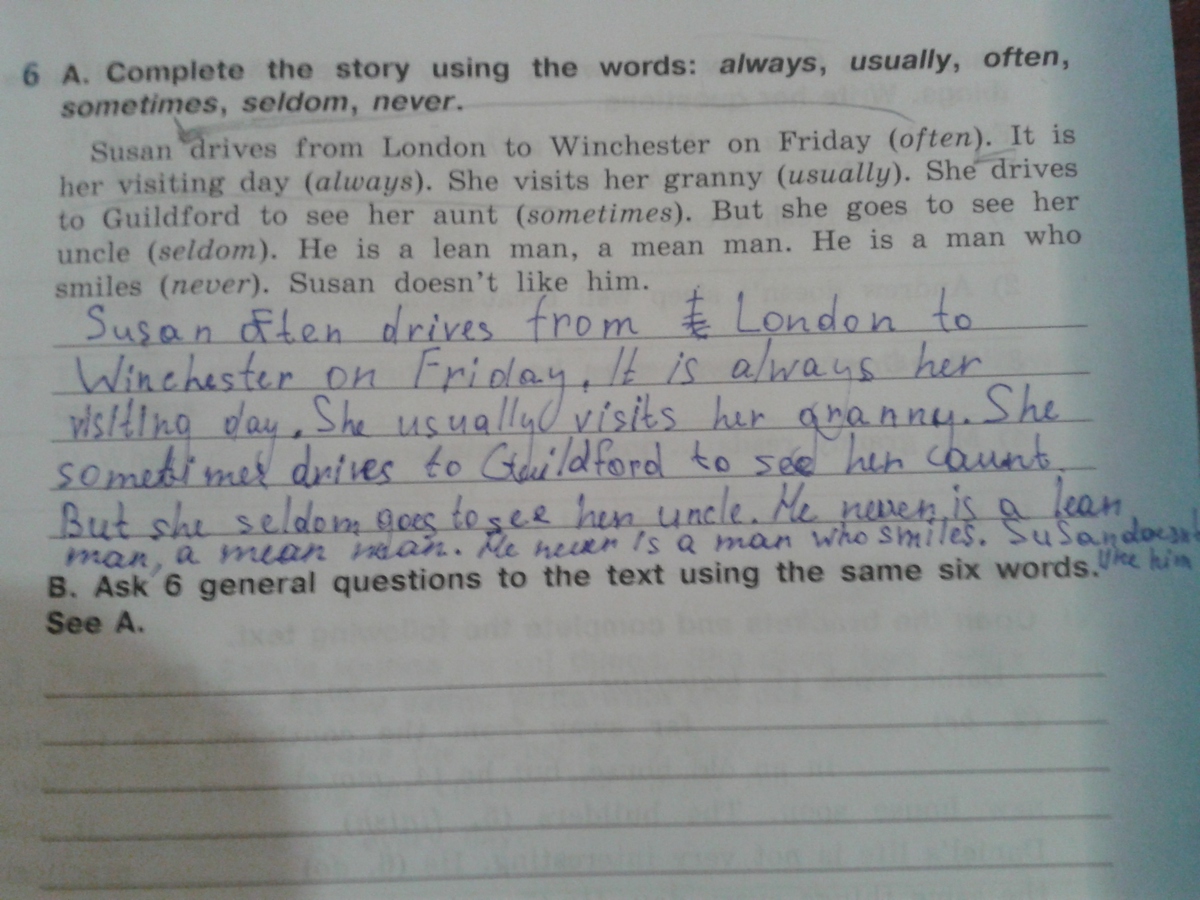 6 A. Complete the story using the words: always, usually, often,
sometimes, seldom, never.
Susan drives from London to Winchester on Friday (often). It is
her visiting day (always). She visits her granny (usually). She drives
to Guildford to see her aunt (sometimes). But she goes to see her
uncle (seldom). He is a lean man, a mean man. He is a man who
smiles (never). Susan doesn't like him.
Susan often drives from London to
Winchester on Friday. It is always her
visiting day. She usually visits her granny. She
sometimes drives to Guildford to see her aunt.
But she seldom goes to see her uncle. He never is a lean
man, a mean man. He never is a man who smiles. Susan doesn't
like him
B. Ask 6 general questions to the text using the same six words.
See A.